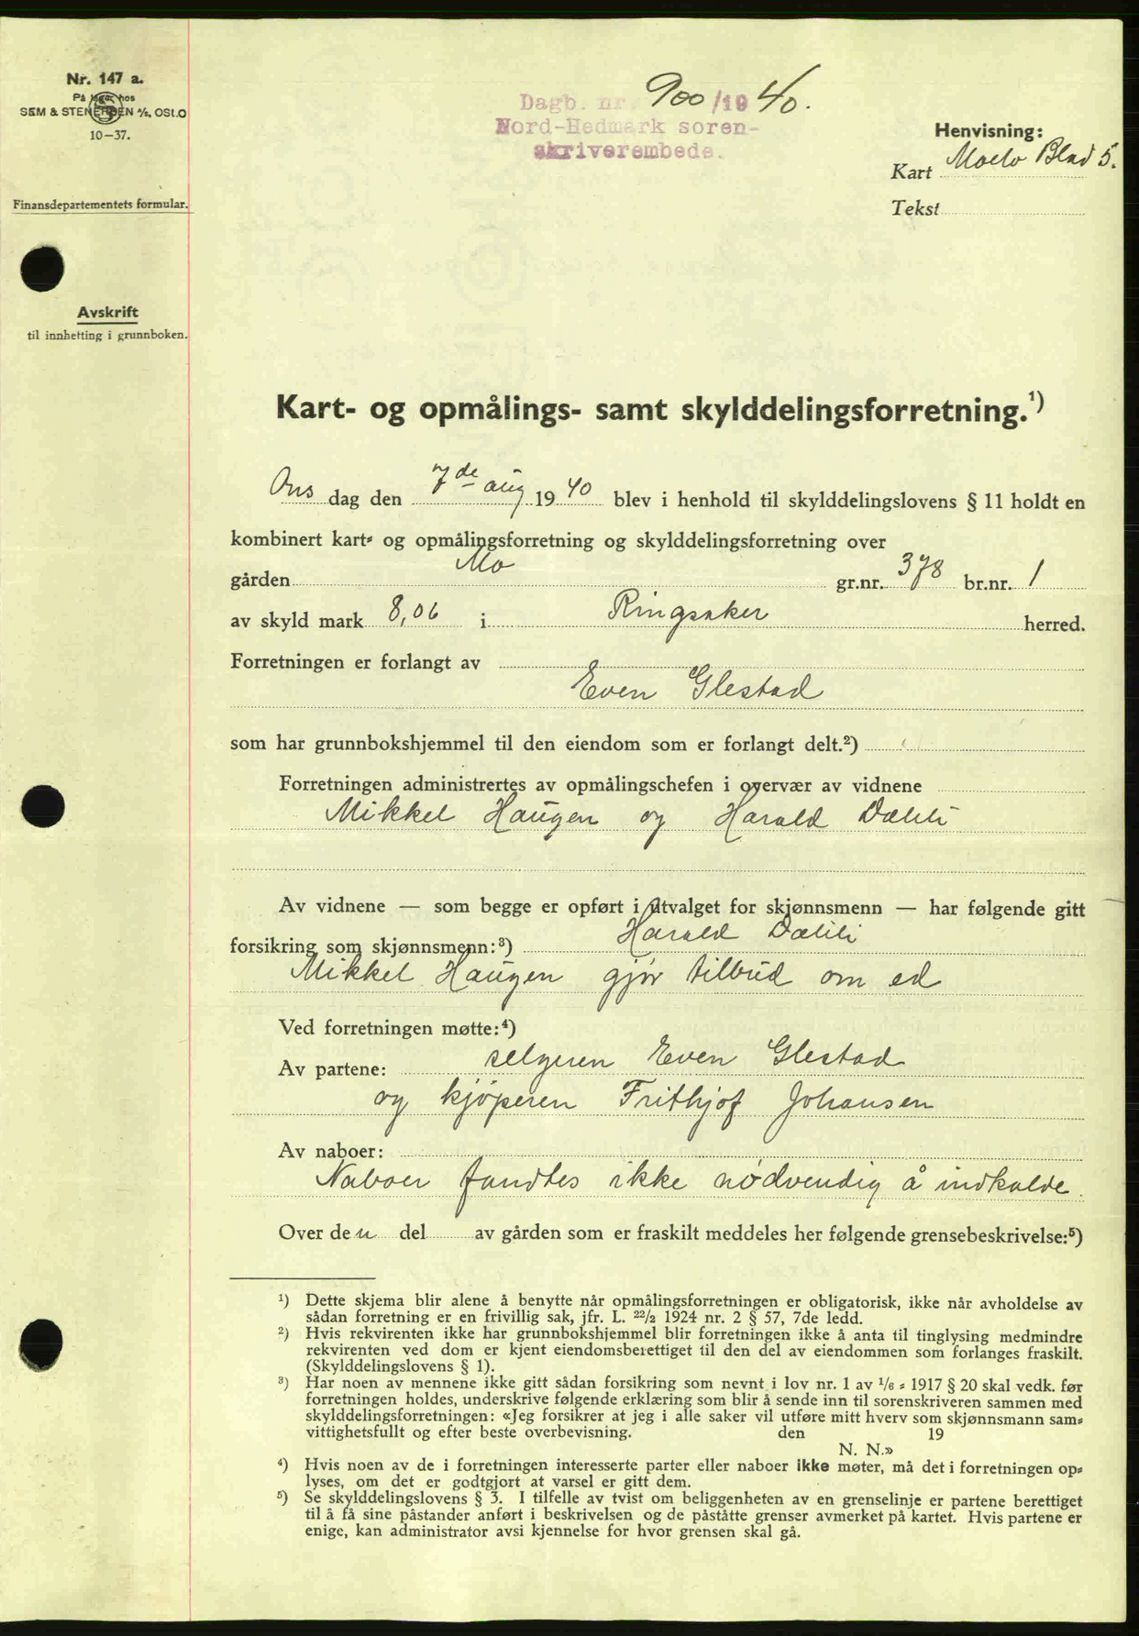 Nr. 147 a.
På lager hos
SEM & STENERSEN A/S, OSLO
10—37.
Finansdepartementets formular.
Avskrift
til innhefting i grunnboken.
Dagb. nr. 900/1940.
Nord-Hedmark soren-
skriverembede.
Henvisning:
Kart Moelv Blad 5.
Tekst
Kart- og opmålings- samt skylddelingsforretning.¹)
Ons dag den 7de aug 1940 blev i henhold til skylddelingslovens § 11 holdt en
kombinert kart- og opmålingsforretning og skylddelingsforretning over
gården Mo gr.nr. 378 br.nr. 1
av skyld mark 8,06 i Ringsaker herred.
Forretningen er forlangt av
Even Glestad
som har grunnbokshjemmel til den eiendom som er forlangt delt.²)
Forretningen administrertes av opmålingschefen i overvær av vidnene
Mikkel Haugen og Harald Dæhli
Av vidnene — som begge er opført i utvalget for skjønnsmenn — har følgende gitt
forsikring som skjønnsmenn:³) Harald Dæhli
Mikkel Haugen gjør tilbud om ed
Ved forretningen møtte:⁴)
Av partene: selgeren Even Glestad
og kjøperen Frithjof Johansen
Av naboer:
Naboer fandtes ikke nødvendig å indkalde.
Over den del av gården som er fraskilt meddeles her følgende grensebeskrivelse:⁵)
¹) Dette skjema blir alene å benytte når opmålingsforretningen er obligatorisk, ikke når avholdelse av
sådan forretning er en frivillig sak, jfr. L. 22/2 1924 nr. 2 § 57, 7de ledd.
²) Hvis rekvirenten ikke har grunnbokshjemmel blir forretningen ikke å anta til tinglysing medmindre
rekvirenten ved dom er kjent eiendomsberettiget til den del av eiendommen som forlanges fraskilt.
(Skylddelingslovens § 1).
³) Har noen av mennene ikke gitt sådan forsikring som nevnt i lov nr. 1 av 1/6 - 1917 § 20 skal vedk. før
forretningen holdes, underskrive følgende erklæring som blir å sende inn til sorenskriveren sammen med
skylddelingsforretningen: «Jeg forsikrer at jeg i alle saker vil utføre mitt hverv som skjønnsmann sam-
vittighetsfullt og efter beste overbevisning. den 19
N. N.»
⁴) Hvis noen av de i forretningen interesserte parter eller naboer ikke møter, må det i forretningen op-
lyses, om det er godtgjort at varsel er gitt dem.
⁵) Se skylddelingslovens § 3. I tilfelle av tvist om beliggenheten av en grenselinje er partene berettiget
til å få sine påstander anført i beskrivelsen og de påståtte grenser avmerket på kartet. Hvis partene er
enige, kan administrator avsi kjennelse for hvor grensen skal gå.